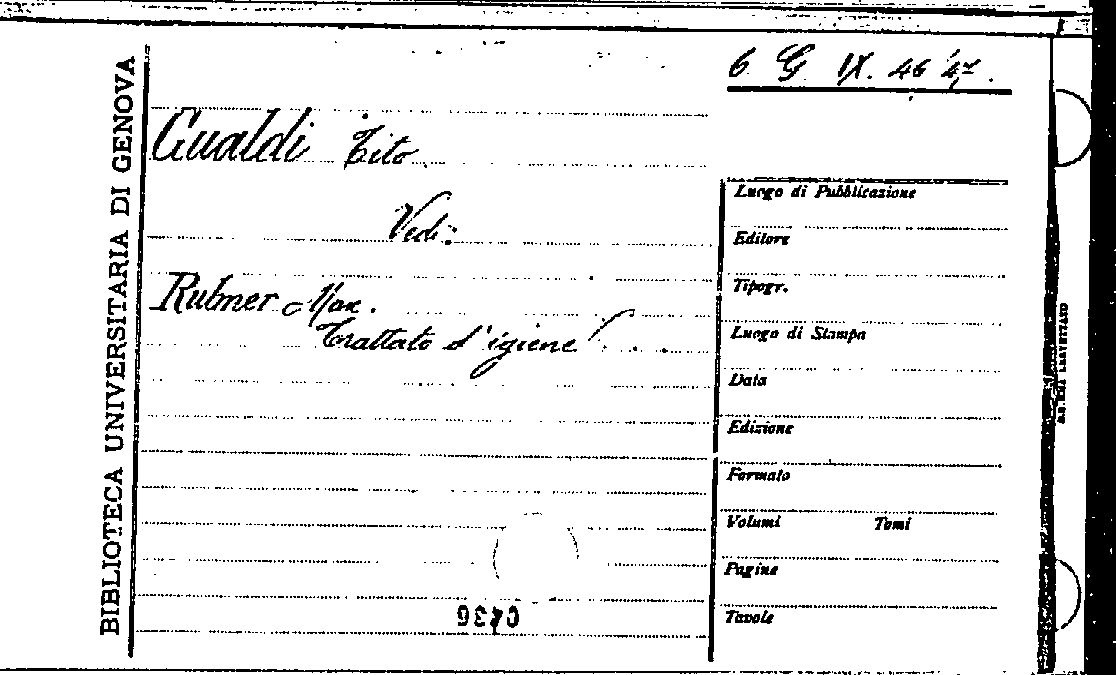 6 G IX. 46 47.
BIBLIOTECA UNIVERSITARIA DI GENOVA
Gualdi Tito
Vedi:
Rubner Max.
Trattato d'igiene
Luogo di Pubblicazione
Editore
Tipogr.
Luogo di Stampa
Data
Edizione
Formato
Volumi Tomi
Pagine
Tavole